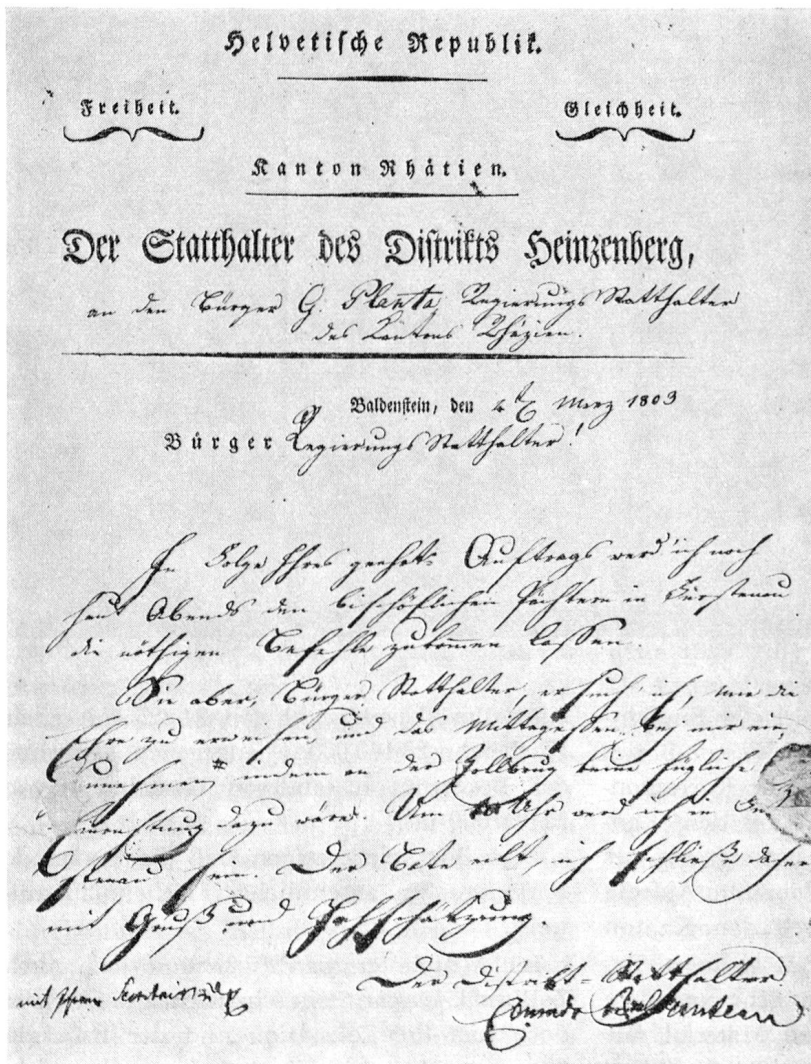 Helvetische Republik.
Freiheit. Gleichheit.
Kanton Rhätien.
Der Statthalter des Distrikts Heinzenberg,
an den Bürger G. Planta, Regierungs Statthalter
des Kantons Rhäzien.
Baldenstein, den März 1803
Bürger Regierungs Statthalter!
In Folge Ihres geehrt. Auftrags werd ich noch
heut Abends den bischöflichen Pächtern in Fürstenau
die nöthigen Befehle zukommen lassen.
Sie aber, Bürger Statthalter, ersuch ich, mir die
Ehre zu erweisen und das Mittagessen bey mir ein
zunehmen, indem an der Zollbrug keine fügliche
Einrichtung dazu wäre. Um Uhr werd ich in Für
stenau sein. Der Bote eilt, ich schließe daher
mit Gruß und Hochschätzung
Der District-Statthalter
mit Ihrem Secretair Conradi Baldenstein